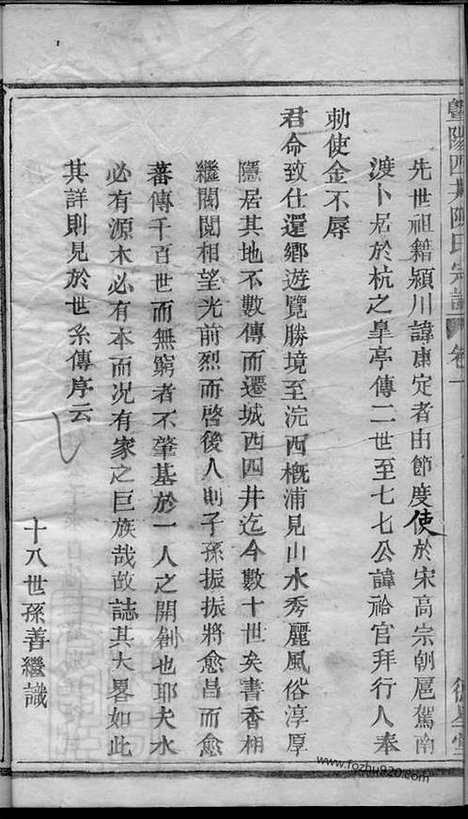 暨陽四井陳氏宗譜 卷一
先世祖籍潁川諱康定者由節度使於宋高宗朝扈駕南
渡卜居於杭之皐亭傳二世至七七公諱祫官拜行人奉
勅使金不辱
君命致仕還鄉遊覽勝境至浣西概浦見山水秀麗風俗淳厚
隱居其地不數傳而遷城西四井迄今數十世矣書香相
繼閥閱相望光前烈而啓後人則子孫振振將愈昌而愈
蕃傳千百世而無窮者不肇基於一人之開創也耶夫水
必有源木必有本而况有家之巨族哉故誌其大畧如此
其詳則見於世系傳序云
十八世孫善繼識
www.fozhu920.com